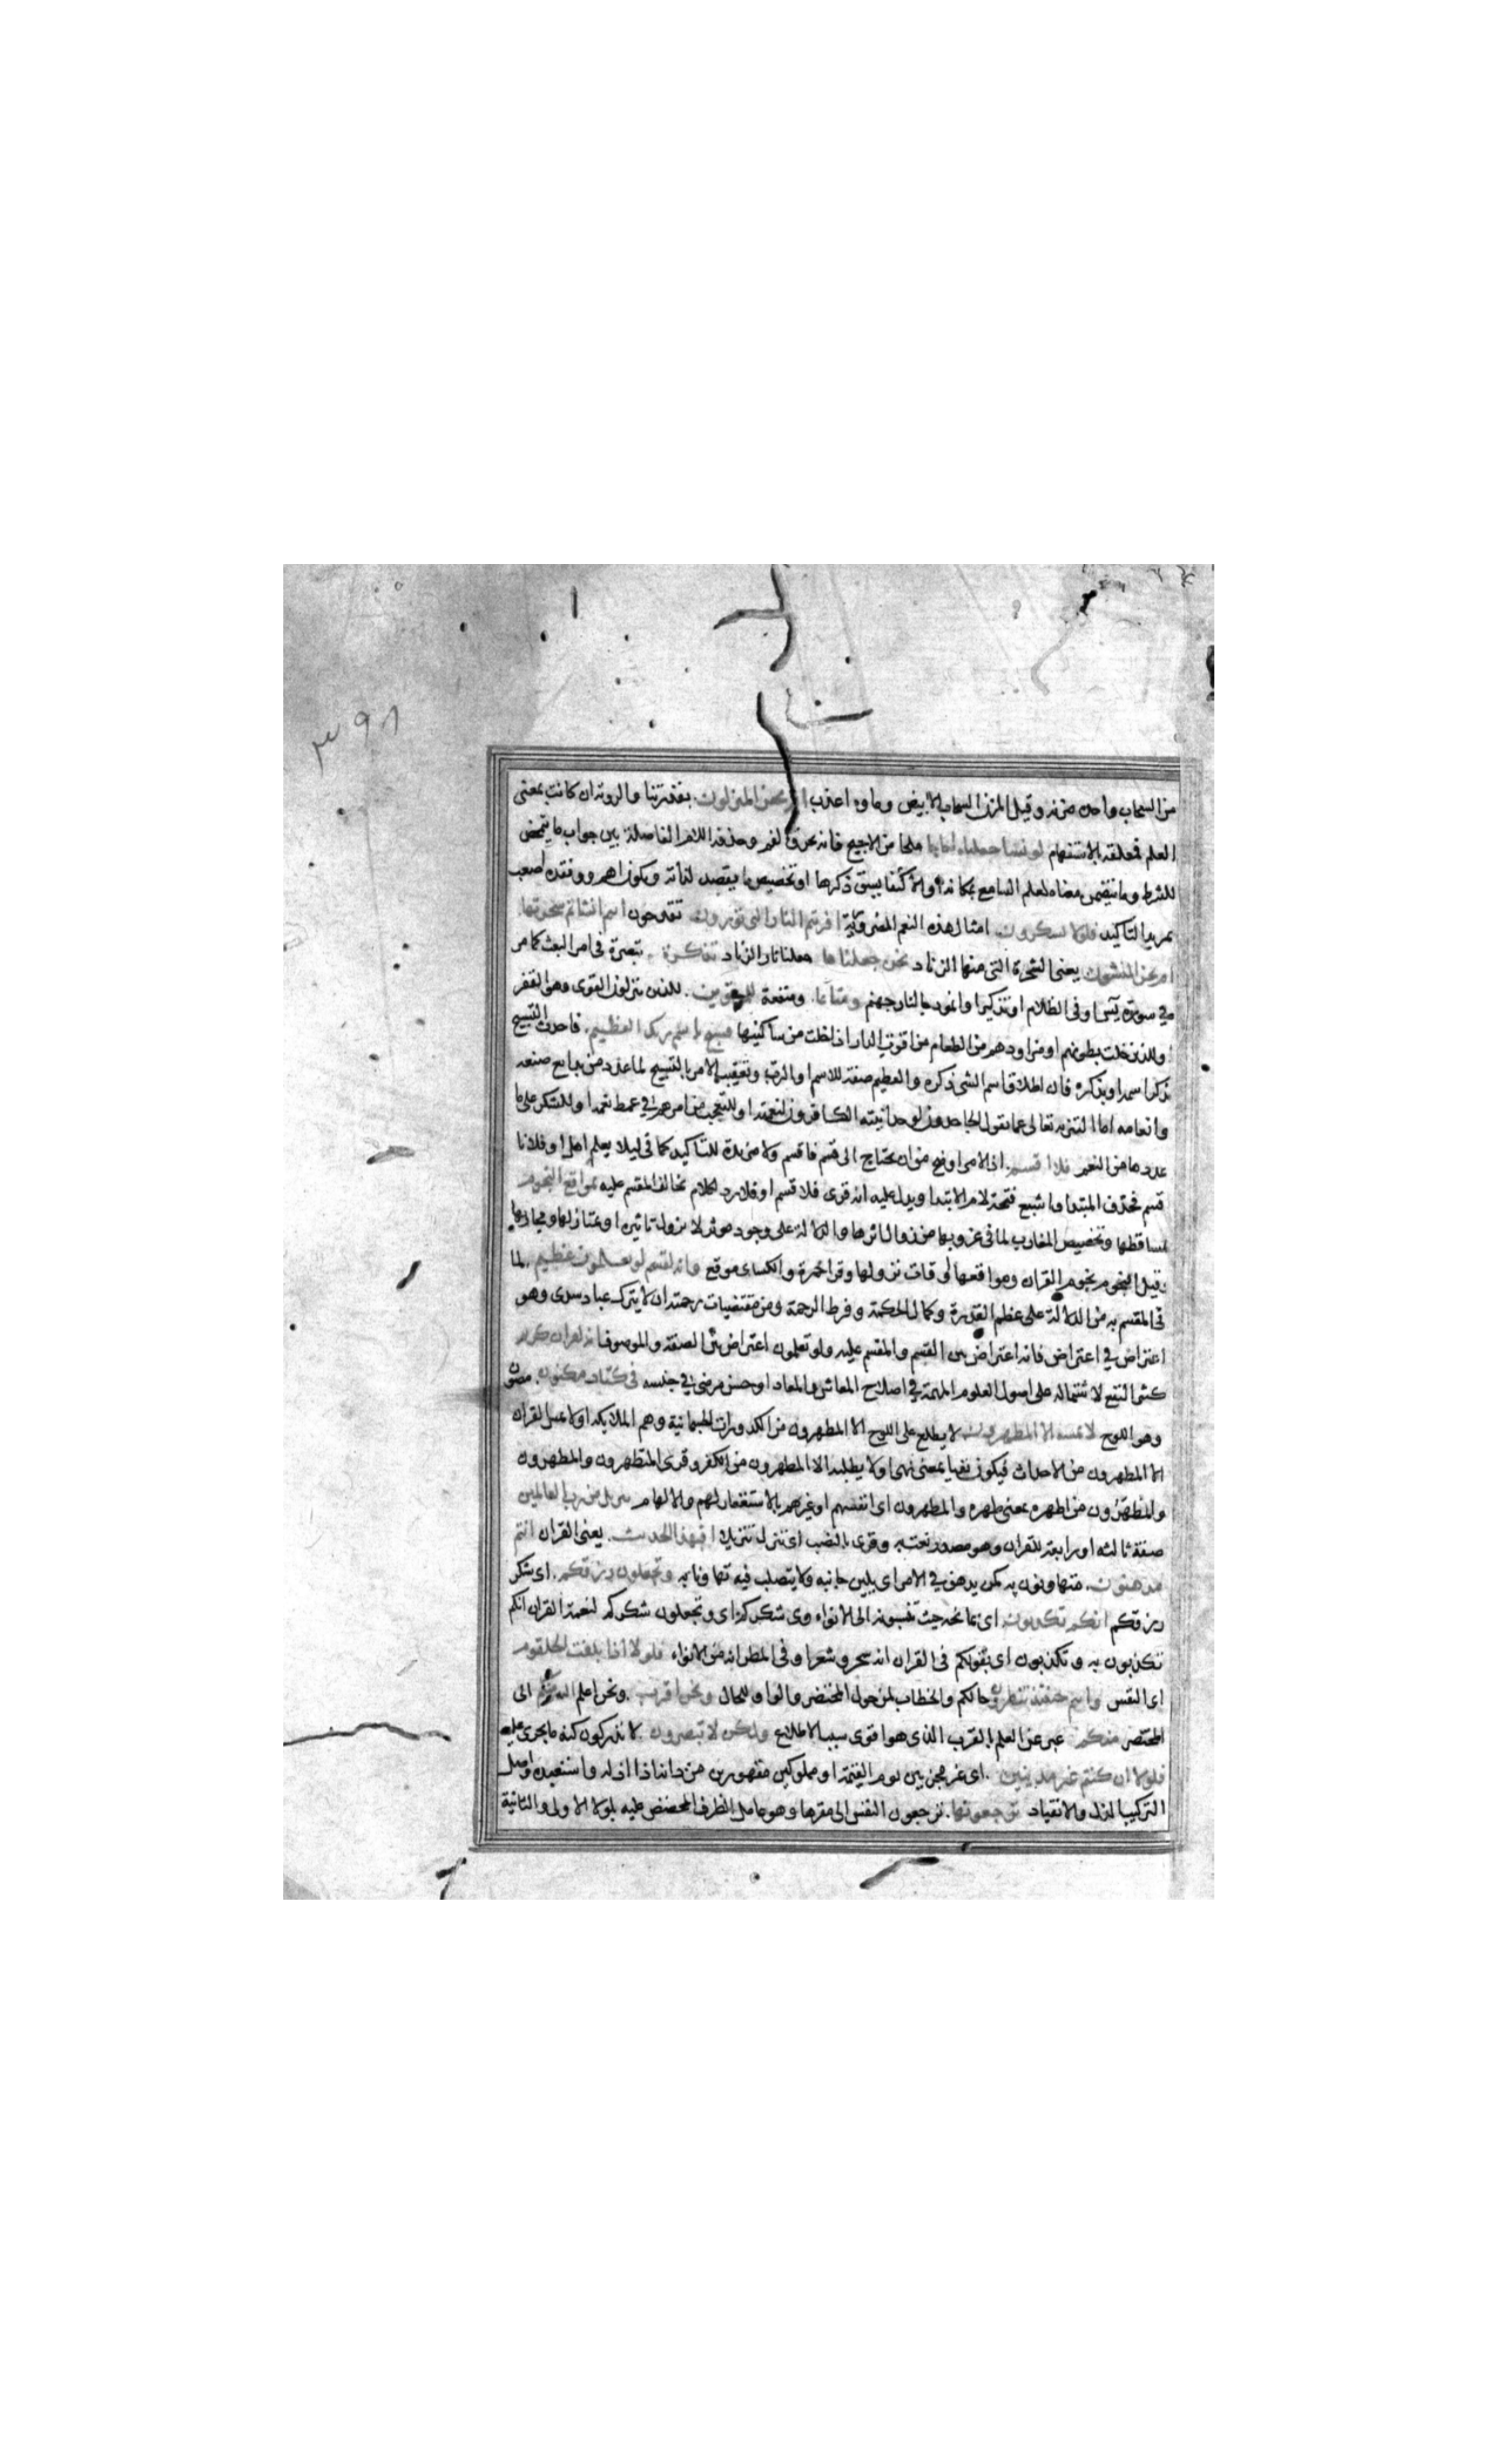 ٣٩٨
من السحاب واحده مزنه وقيل المزن السحاب الابيض وماوه اعذب ام نحن المنزلون بقدرتنا والرويه ان كانت بمعنى
العلم فمعلقه بالاستفهام لو نشا جعلناه اجاجا ملحا من الاجيج فانه يحرق الفم وحذف اللام الفاصلة بين جواب ما يتمحض
للشرط وما يتضمن معناه لعلم السامع بمكانها او الاكتفا بسبق ذكرها او تخصيص ما يقصد لذاته ويكون اهم وفقده اصعب
بمزيد التاكيد فلولا تشكرون امثال هذه النعم الضرورية افرءيتم النار التي تورون تقدحون اانتم انشاتم شجرتها
ام نحن المنشون يعنى الشجرة التى منها الزناد نحن جعلناها جعلنا نار الزناد تذكرة تبصرة فى امر البعث كما مر
في سورة يس او فى الظلام او تذكيرا وانموذجا لنار جهنم ومتاعا ومنفعة للمقوين للذين ينزلون القوى وهى القفر
او للذين خلت بطونهم او مزاودهم من الطعام من اقوت الدار اذا خلت من ساكنيها فسبح باسم ربك العظيم فاحدث التسبيح
بذكر اسمه او بذكره فان اطلاق اسم الشى ذكره والعظيم صفة للاسم او الرب وتعقيب الامر بالتسبيح لما عدد من بدايع صنعه
وانعامه اما لتنزيهه تعالى عما يقول الجاحدون لوحدانيته الكافرون لنعمته او للتعجب من امرهم في غمط نعمه او للشكر على ما
عددها من النعم فلا اقسم اذ الامر اوضح من ان يحتاج الى قسم فاقسم ولا مزيدة للتاكيد كما فى ليلا يعلم اهل او فلانا
قسم فحذف المبتدا واشبع فتحة لام الابتدا ويدل عليه انه قرى فلاقسم او فلا رد لكلام يخالف المقسم عليه بمواقع النجوم
بمساقطها وتخصيص المغارب لما فى غروبها من زوال اثرها والدلالة على وجود موثر لا يزول تاثيره او بمنازلها ومجاريها
وقيل النجوم نجوم القران ومواقعها اوقات نزولها وقرا حمزة والكساى بموقع وانه لقسم لو تعلمون عظيم لما
فى المقسم به من الدلالة على عظم القدرة وكمال الحكمة وفرط الرحمة ومن مقتضيات رحمته ان لا يترك عباده سدى وهو
اعتراض في اعتراض فانه اعتراض بين القسم والمقسم عليه ولو تعلمون اعتراض بين الصفة والموصوف انه لقران كريم
كثير النفع لاشتماله على اصول العلوم المهمة في اصلاح المعاش والمعاد او حسن مرضى في جنسه فى كتاب مكنون مصون
وهو اللوح لا يمسه الا المطهرون لا يطلع على اللوح الا المطهرون من الكدورات الجسمانية وهم الملايكه او لا يمس القران
الا المطهرون من الاحداث فيكون نفيا بمعنى نهى او لا يطلبه الا المطهرون من الكفر وقرى المتطهرون والمطهرون
والمطهرون من اطهره بمعنى طهره والمطهرون اى انفسهم او غيرهم بالاستغفار لهم والالهام تنزيل من رب العالمين
صفة ثالثه او رابعة للقران وهو مصدر نعت به وقرى بالنصب اى نزل تنزيلا افبهذا الحديث يعنى القران انتم
مدهنون متهاونون به كمن يدهن في الامر اى يلين جانبه ولا يتصلب فيه تهاونا به وتجعلون رزقكم اى شكر
رزقكم انكم تكذبون اى بمانحه حيث تنسبونه الى الانواء وقرى شكركم اى وتجعلون شكركم لنعمة القران انكم
تكذبون به وتكذبون اى بقولكم فى القران انه سحر وشعر او فى المطر انه من الانواء فلولا اذا بلغت الحلقوم
اى النفس وانتم حينئذ تنظرون حالكم والخطاب لمن حول المحتضر والواو للحال ونحن اقرب ونحن اعلم اليه الى
المحتضر منكم عبر عن العلم بالقرب الذى هو اقوى سبب الاطلاع ولكن لا تبصرون لا تدركون كنه ما يجرى عليه
فلولا ان كنتم غير مدينين اى غير مجزيين يوم القيمة او مملوكين مقهورين من دانه اذا اذله واستعبده واصل
التركيب للذل والانقياد ترجعونها ترجعون النفس الى مقرها وهو عامل الظرف والمحضض عليه بلولا الاولى والثانية